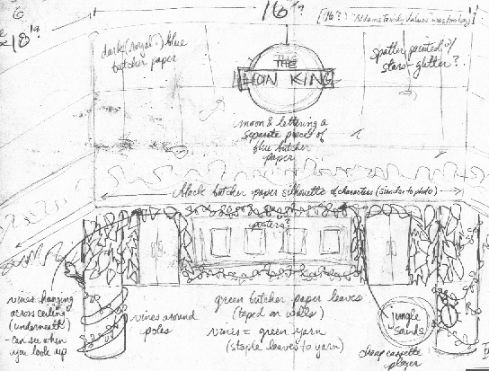 16'?
[(16'?) "Addams Family Values was too big"]
18'?
dark (royal?) blue
butcher paper
THE
LION KING
spatter painted w/
stars - glitter?
moon & lettering a
separate piece of
blue butcher
paper
black butcher paper silhouette of characters (similar to photo)
posters?
vines hanging
across ceiling
(underneath)
- can see when
you look up
vines around
poles
green butcher paper leaves
(taped on walls)
vines = green yarn
(staple leaves to yarn)
jungle
sounds
cheap cassette
player